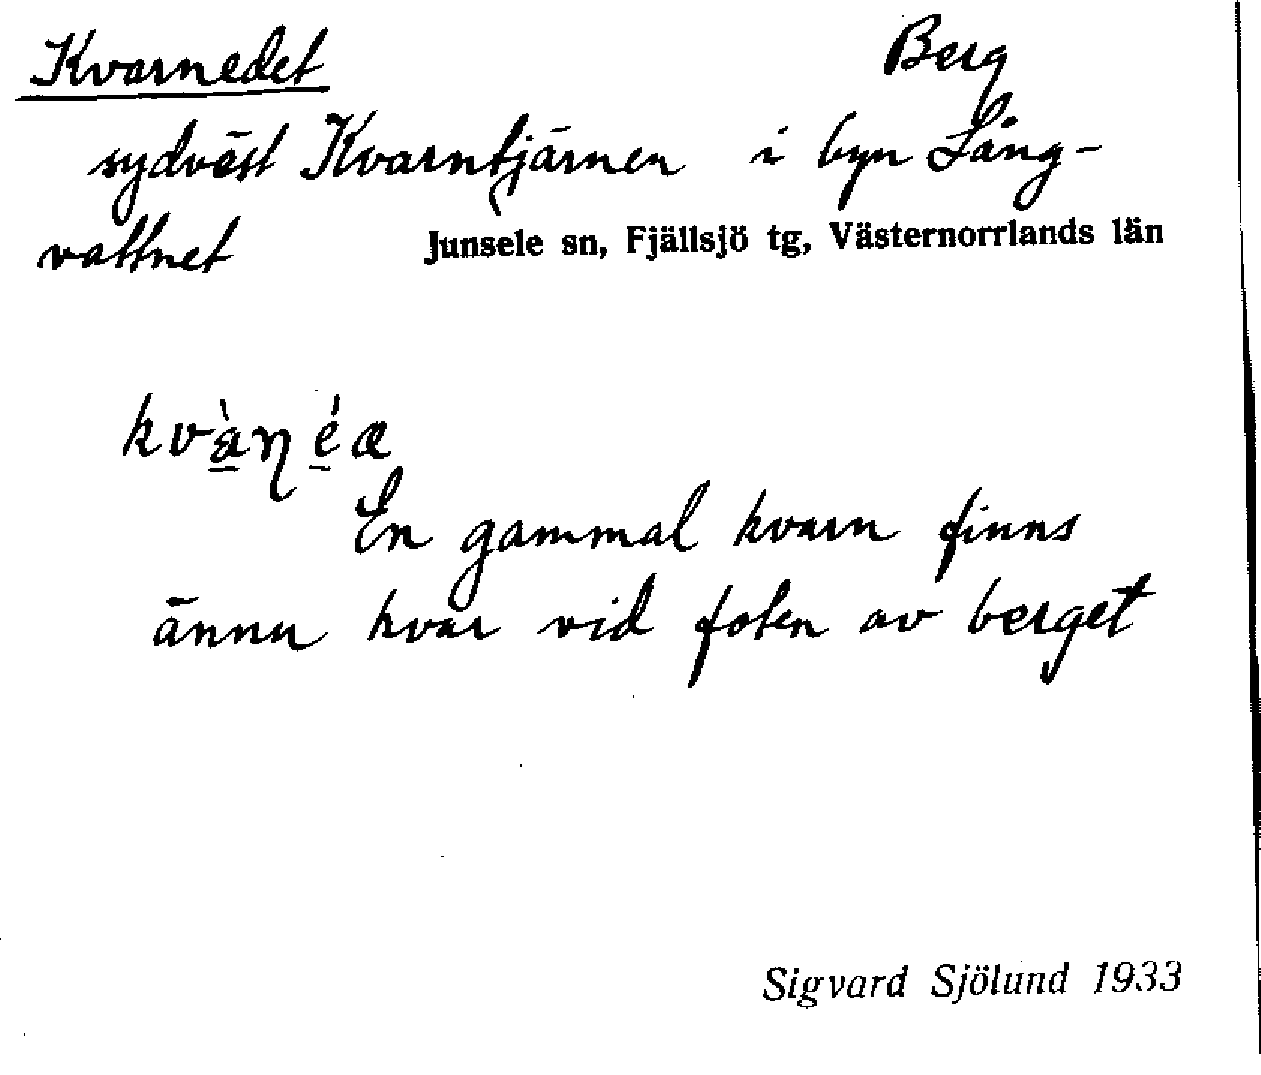 Kvarnedet Berg
sydväst Kvarntjärnen i byn Lång-
vattnet Junsele sn, Fjällsjö tg, Västernorrlands län
kvàṇéæ
En gammal kvarn finns
ännu kvar vid foten av berget
Sigvard Sjölund 1933